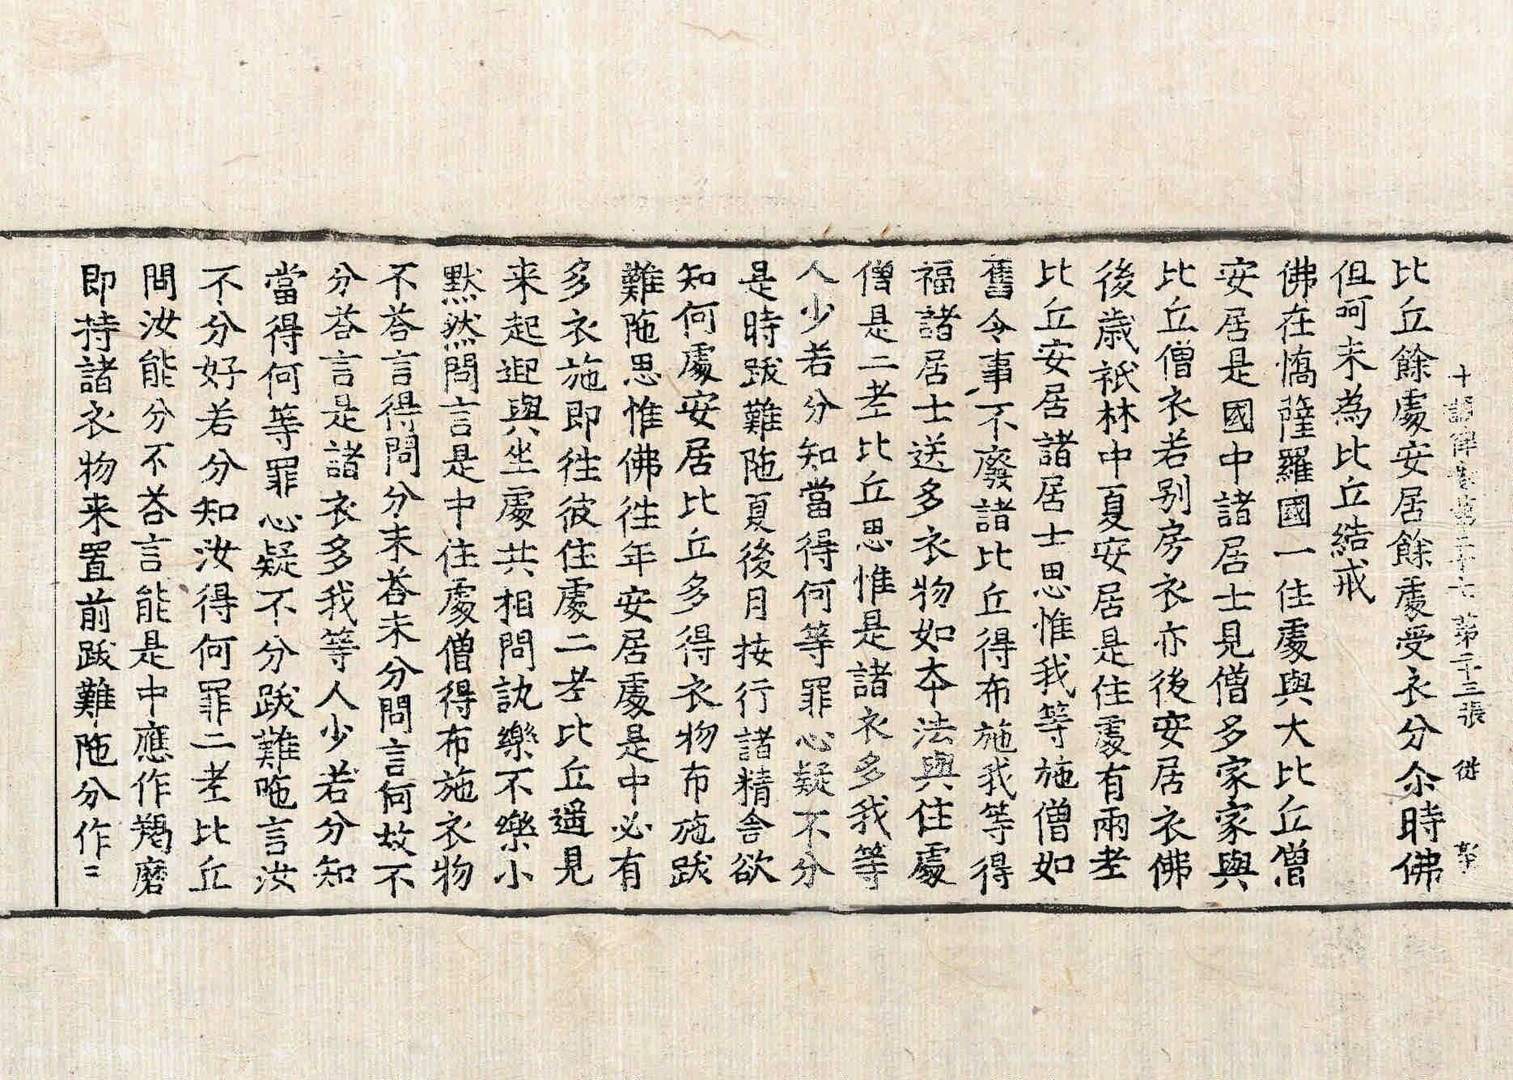 十誦律卷第二十六 第二十三張 從
比丘餘處安居餘處受衣分尒時佛
但呵未為比丘結戒
佛在憍薩羅國一住處與大比丘僧
安居是國中諸居士見僧多家家與
比丘僧衣若别房衣亦後安居衣佛
後歲祇林中夏安居是住處有兩老
比丘安居諸居士思惟我等施僧如
舊令事不廢諸比丘得布施我等得
福諸居士送多衣物如本法與住處
僧是二老比丘思惟是諸衣多我等
人少若分知當得何等罪心疑不分
是時跋難陁夏後月按行諸精舍欲
知何處安居比丘多得衣物布施跋
難陁思惟佛徃年安居處是中必有
多衣施即徃彼住處二老比丘遥見
来起迎與坐處共相問訊樂不樂小
默然問言是中住處僧得布施衣物
不荅言得問分未荅未分問言何故不
分荅言是諸衣多我等人少若分知
當得何等罪心疑不分跋難陁言汝
不分好若分知汝得何罪二老比丘
問汝能分不荅言能是中應作羯磨
即持諸衣物来置前跋難陁分作三